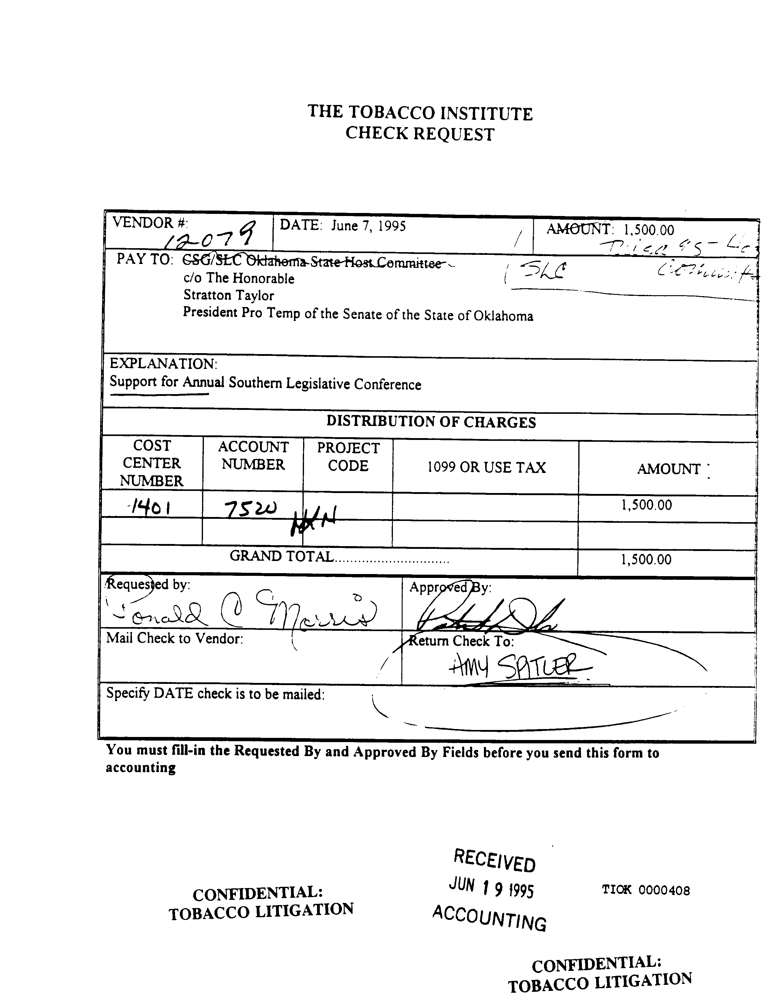 THE TOBACCO INSTITUTE
CHECK REQUEST
VENDOR #:
12079
DATE: June 7, 1995
AMOUNT: 1,500.00
PAY TO: CSG/SLC Oklahoma State Host Committee
SLC
c/o The Honorable
Stratton Taylor
President Pro Temp of the Senate of the State of Oklahoma
EXPLANATION:
Support for Annual Southern Legislative Conference
DISTRIBUTION OF CHARGES
COST CENTER NUMBER
ACCOUNT NUMBER
PROJECT CODE
1099 OR USE TAX
AMOUNT
1401 7520 1,500.00
GRAND TOTAL.............................. 1,500.00
Requested by:
Approved By:
Mail Check to Vendor:
Return Check To:
AMY SPITLER
Specify DATE check is to be mailed:
You must fill-in the Requested By and Approved By Fields before you send this form to
accounting
RECEIVED
JUN 19 1995
ACCOUNTING
CONFIDENTIAL:
TOBACCO LITIGATION
TIOK 0000408
CONFIDENTIAL:
TOBACCO LITIGATION